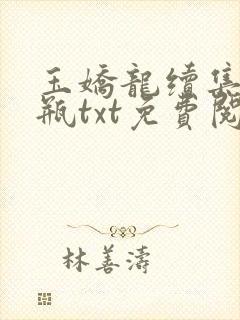 玉嬌龍續集
瓶txt免費閱
林善濤